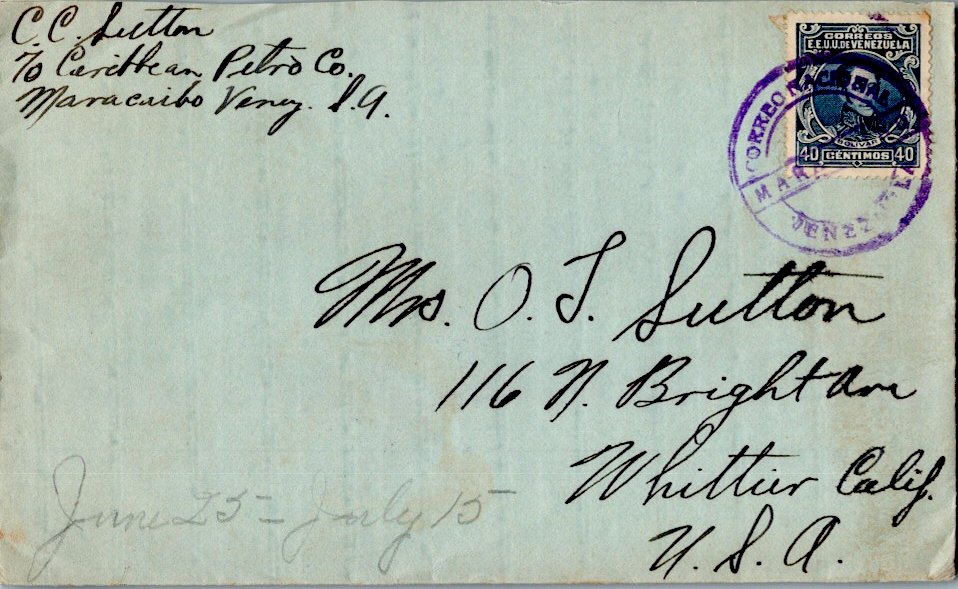 C. C. Sutton
℅ Caribbean Petro Co.
Maracaibo Venez. S. A.
CORREOS
E.E.U.U. DE VENEZUELA
BOLIVAR
40 CÉNTIMOS 40
CORREO NACIONAL
MARA
VENEZUELA
Mrs. O. T. Sutton
116 N. Bright Ave
Whittier Calif.
U. S. A.
June 25 - July 15